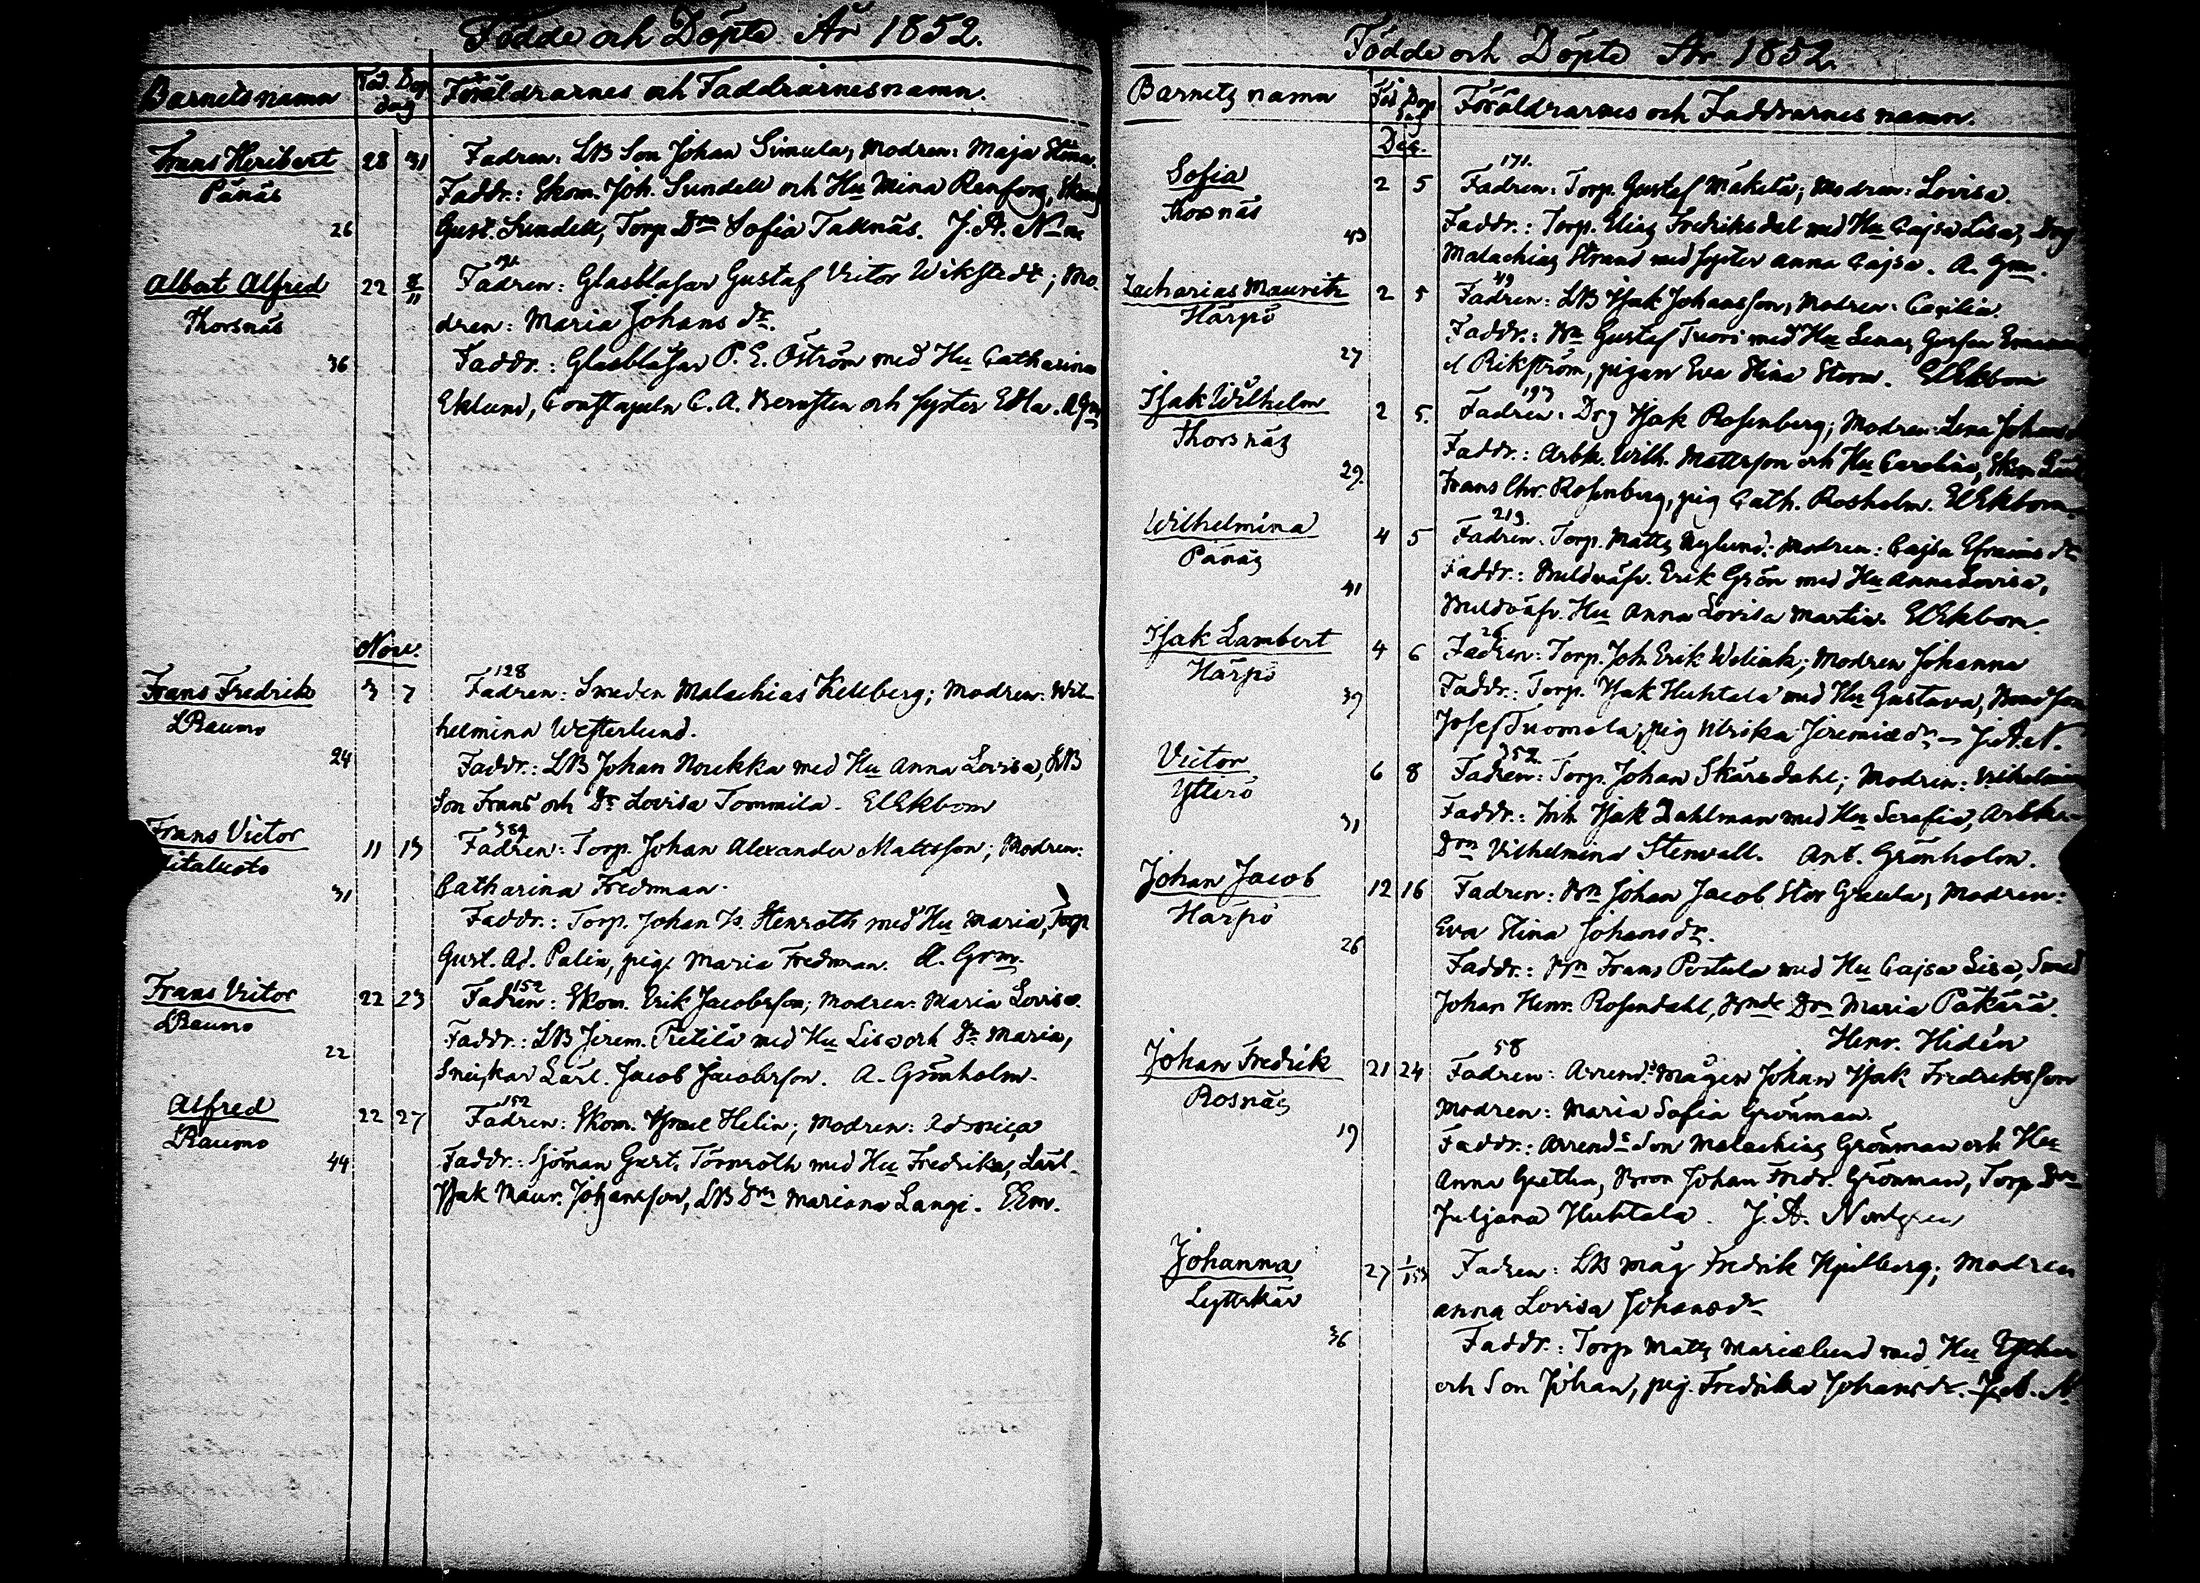 Födde och Döpte År 1852.
Barnets namn Föd. Dop dag Föräldrarnes och Faddrarnes namn.
Frans Heribert 28 31 Fadren: LB Son Johan Simula, Modren: Maja Stina.
Pånäs Faddr.: Skom. Joh. Sundell och Hu Mina Renfors,
26 Gust. Sundell, Torp. Drn Sofia Tallnäs. J. A. N
Albert Alfred 22 8/11 Fadren: Glasblåsar Gustaf Victor Wikstedt; Mo-
Thorsnäs dren: Maria Johans dr.
36 Faddr.: Glasblåsar P. E. Öström med Hu Catharina
Eklund, Constapeln C. A. Bernsten och syster Edla. A Gm
Nov.
128
Frans Fredrik 3 7 Fadren: Smeden Malachias Kellberg; Modren: Wil-
LRaumo helmina Westerlund.
24 Faddr.: LB Johan Noukka med Hu Anna Lovisa, LB
Son Frans och Dr Lovisa Tommila. ElEkbom
389
Frans Victor 11 13 Fadren: Torp. Johan Alexander Mattsson; Modren:
31 Catharina Fredman.
Faddr.: Torp. Johan Is. Stenroth med Hu Maria, Torp
Gust. Ad. Palin, pig. Maria Fredman. A. Grm.
152
Frans Victor 22 23 Fadren: Skom. Erik Jacobsson; Modren: Maria Lovisa.
LRaumo Faddr.: LB Jerem. Tretilä med Hu Lisa och Dr Maria,
22 Sneikar Lärl. Jacob Jacobsson. A. Grönholm.
152
Alfred 22 27 Fadren: Skom. Israel Helin; Modren:
LRaumo Faddr.: Sjöman Gust. Törnroth med Hu Fredrika, Lärl.
44 Isak Maur. Johansson, LB Drn Mariana Langi.
Födde och Döpte År 1852.
Barnets namn Föd Dop dag Föräldrarnes och Faddrarnes namn.
Dec.
171.
Sofia 2 5 Fadren: Torp. Gustaf Mäkelä; Modren: Lovisa.
Thorsnäs Faddr.: Torp. Elias Fredriksdal med Hu Cajsa Lisa, Drg
43 Malachias Strand med syster Anna Cajsa. A. Gm.
49
Zacharias Mauritz 2 5 Fadren: LB Isak Johansson, Modren: Cecilia.
Harpö Faddr.: Bn Gustaf Tuori med Hu Lena,
27 Rikström, pigan Eva Stina Storm. ElEkbom
193
Isak Wilhelm 2 5. Fadren: Drg Isak Rosenberg; Modren: Lena Johans
Thorsnäs Faddr.: Arbk. Wilh. Mattsson och Hu Carolina, Skom Lärl
29. Frans Chr. Rosenberg, pig Cath. Rosholm. ElEkbom.
219.
Wilhelmina 4 5 Fadren: Torp. Matts Nylund: Modren: Cajsa Efraims dr
Pånäs Faddr.: Buldväfv. Erik Grön med Hu Anna Lovisa,
41 Buldväfv. Hu Anna Lovisa Martin. ElEkbom.
26
Isak Lambert 4 6 Fadren: Torp. Joh. Erik Welink; Modren Johanna
Harpö Faddr.: Torp. Isak Huhtala med Hu Gustava, Bondson
39 Josef Tuomola, pig Ulrika Jeremiædr. J. A. N.
352
Victor 6 8 Fadren: Torp. Johan Skärsdahl; Modren: Vilhelmina
Ytterö Faddr.: Inh Isak Dahlman med Hu Serafia, Arbk.
31 Drn Vilhelmina Stenvall. Ant. Grönholm.
Johan Jacob 12 16 Fadren: Bn Johan Jacob Stor Greula; Modren:
Harpö Eva Stina Johans dr.
26 Faddr.: Bn Frans Postula med Hu Cajsa Lisa, Smed
Johan Henr. Rosendahl, Bonde Drn Maria Päkärä.
Henr. Hidén
58
Johan Fredrik 21 24 Fadren: Arrend.s Mågen Johan Isak Fredriksson
Rosnäs Modren: Maria Sofia Grönman.
19 Faddr.: Arrends Son Malachias Grönman och Hu
Anna Gretha, Bron Johan Fredr. Grönman, Torp Drn
Juljana Huhtala. J. A. Nordgren
Johanna 27 1/1 53 Fadren: LB Måg Fredrik Hjulberg; Modren
Lyttskär Anna Lovisa Johansdr
36 Faddr.: Torp Matts Marielund med Hu
och Son Johan, pig. Fredrika Johansdr.